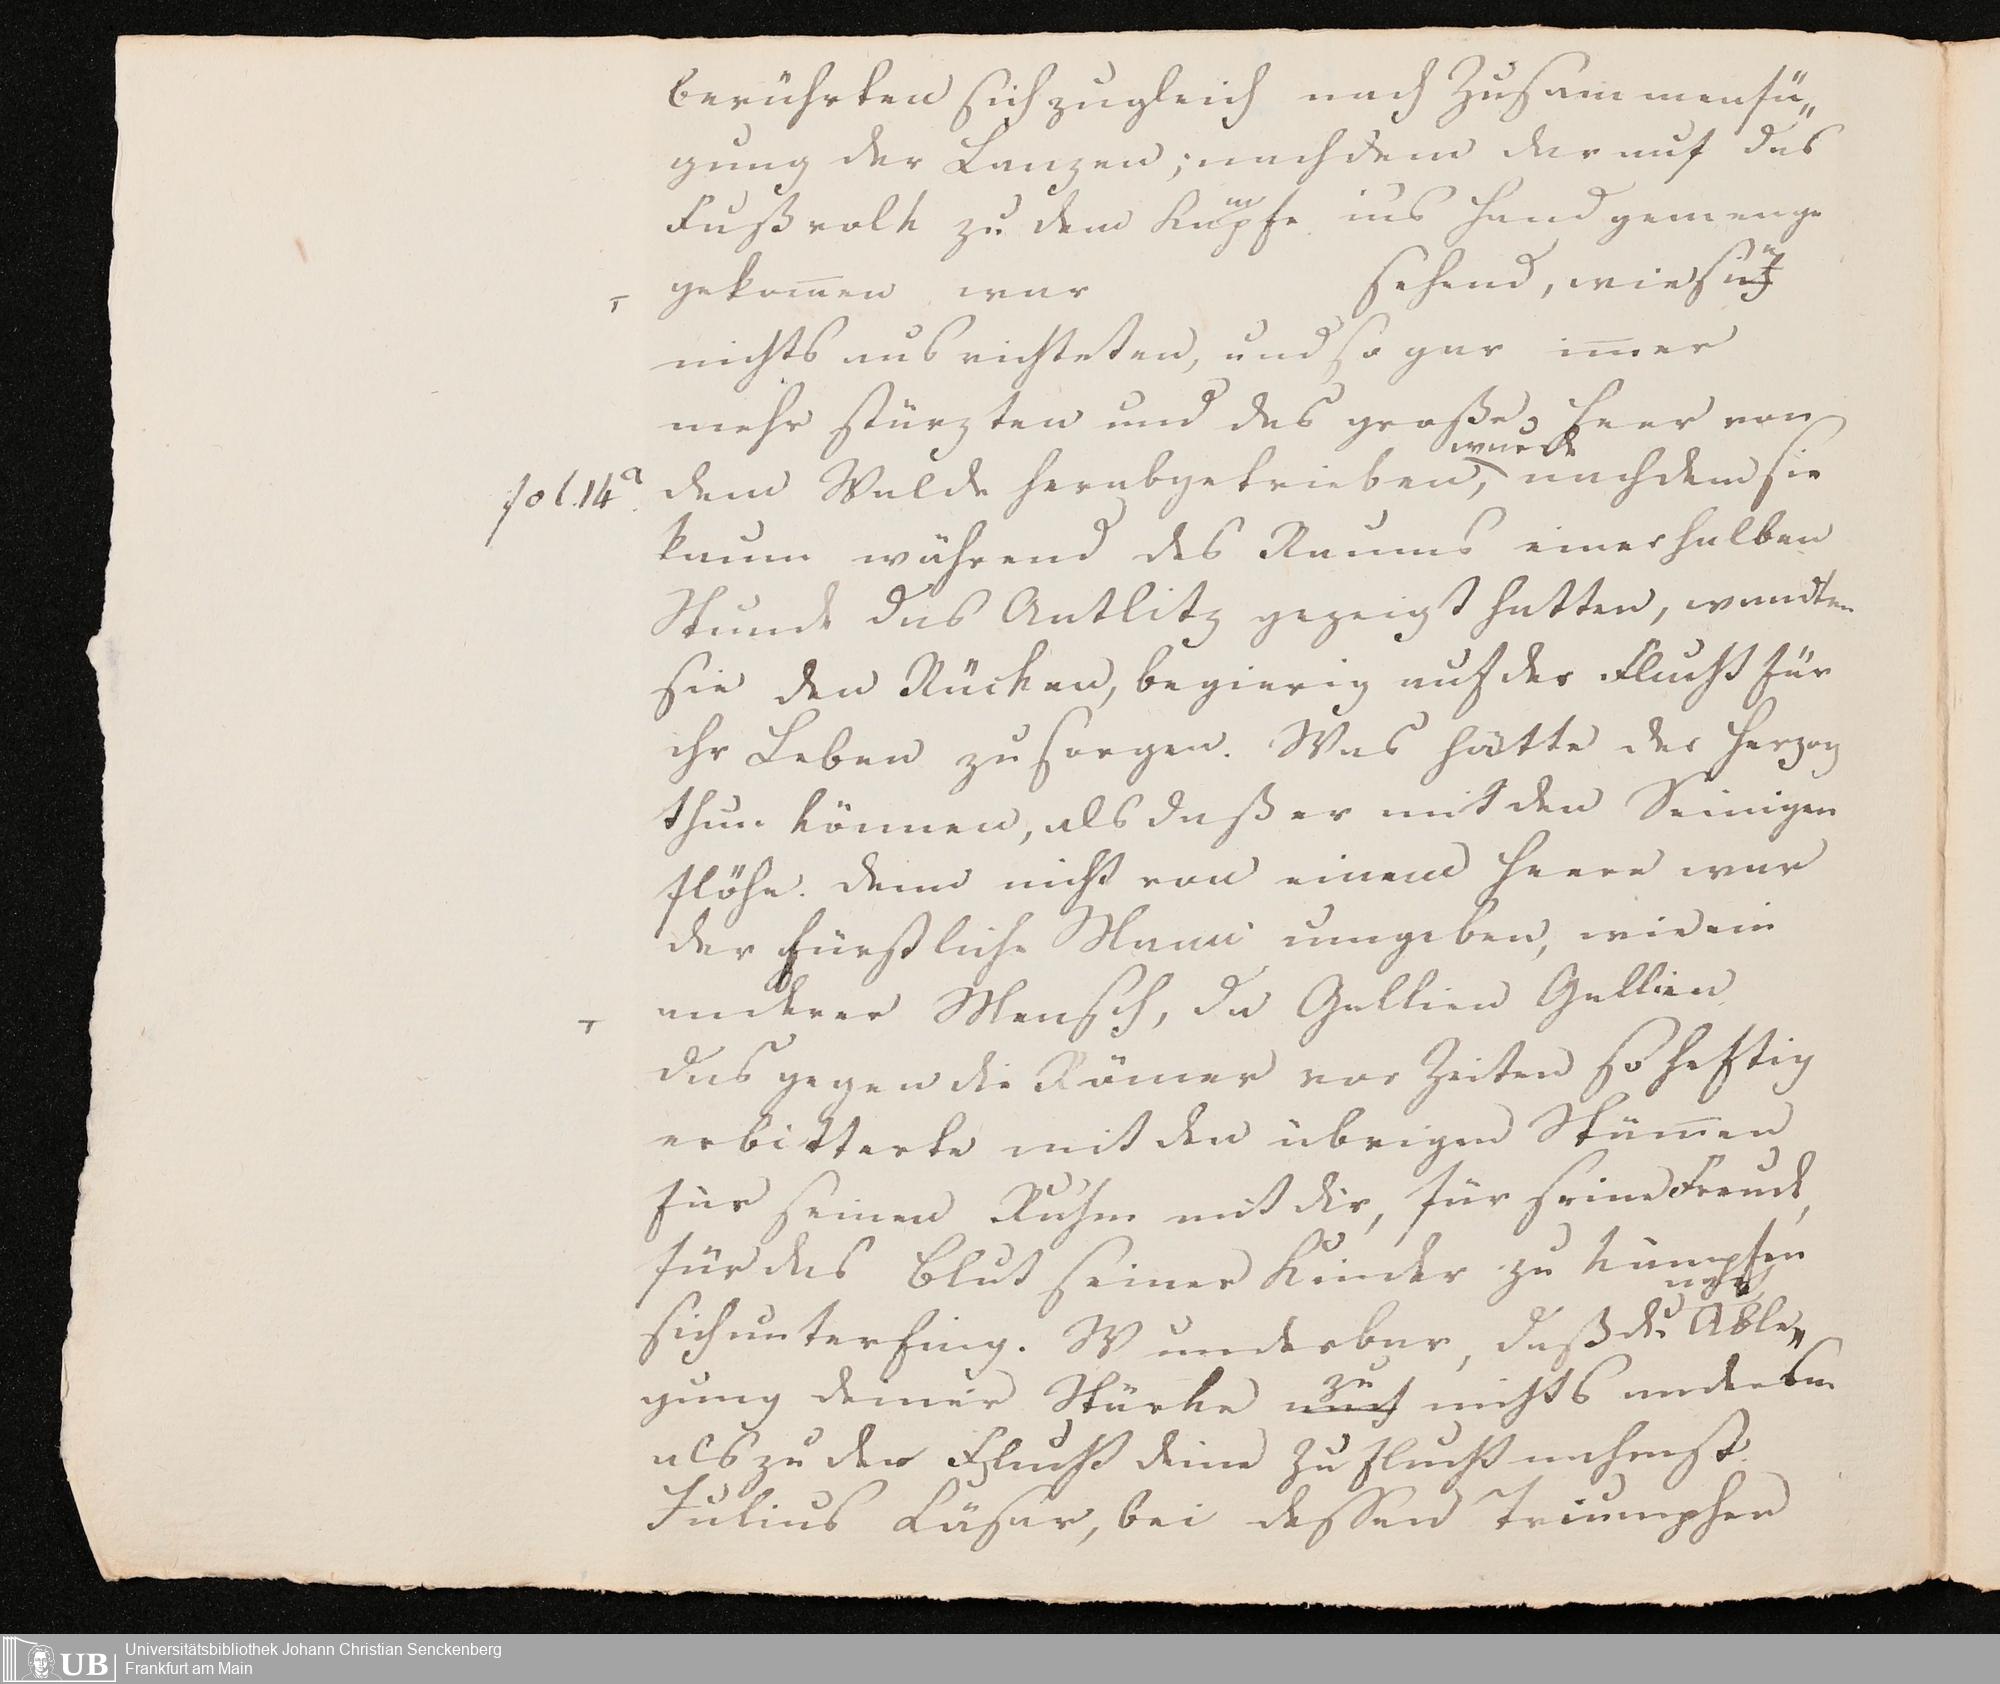 berührten sich zugleich nach Zusammenfü„
gung der Lanzen; nachdem darauf das
Fußvolk zu dem Kampfe ins Handgemenge
gekom̅en war sehend, wie sie
nichts ausrichteten, und sogar im̅er
mehr stürzten und das große Heer von
wurde
fol. 14a. dem Walde herabgetrieben, nachdem sie
kaum während des Raums einer halben
Stunde das Antlitz gezeigt hatten, wandten
sie den Rücken, begierig auf der Flucht für
ihr Leben zu sorgen. Was hätte der Herzog
thun können, als daß er mit den Seinigen
flöhe. denn nicht von einem Heere war
der fürstliche Mann umgeben, wie ein
anderer Mensch, da Gallien Gallien
das gegen die Römer vor Zeiten so heftig
erbitterte mit den übrigen Stäm̅en
für seinen Ruhm mit dir, für seine Freude,
für das Blut seiner Kinder zu kämpfen
sich unterfing. Wunderbar, daß du Able„
zu
gung deiner Stärke nach nichts anderem
als zu der Flucht deine Zuflucht nahmst.
Julius Cäsar, bei dessen Triumphen
UB Universitätsbibliothek Johann Christian Senckenberg
Frankfurt am Main